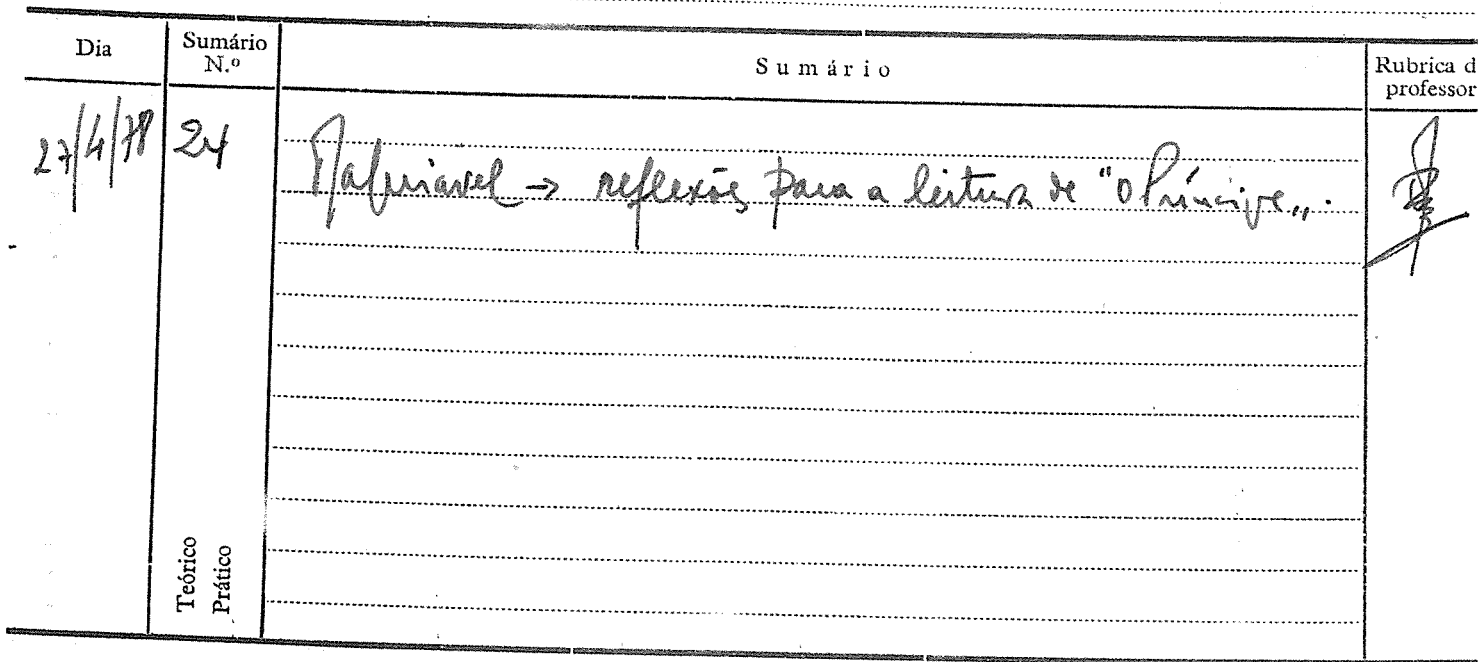 Dia
Sumário N.º
Sumário
Rubrica d
professor
27/4/78
24
Maquiavel → reflexões para a leitura de "O Príncipe".
Teórico
Prático